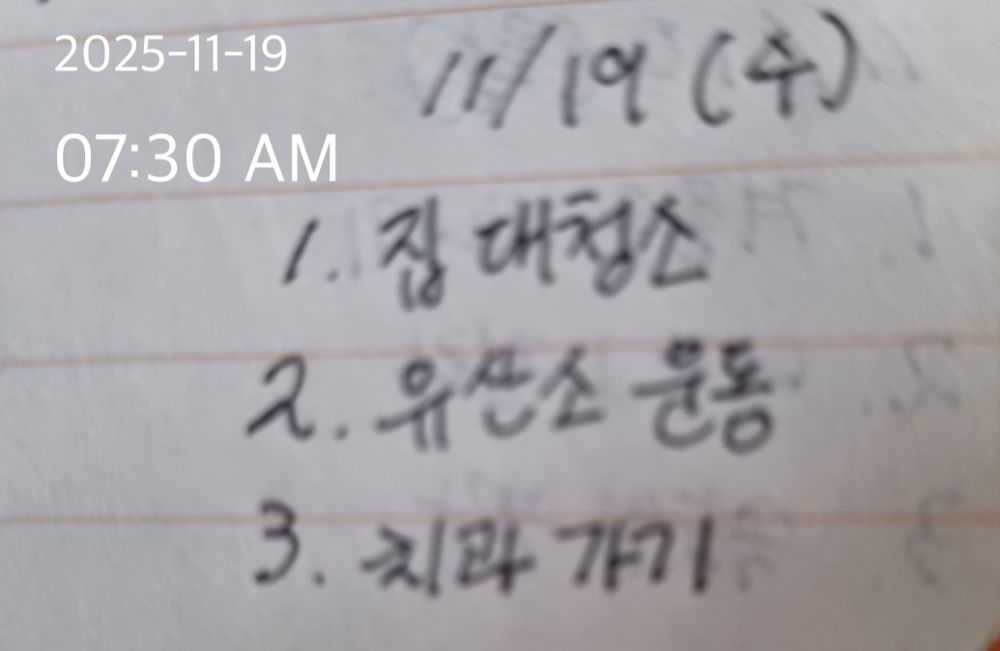 2025-11-19
11/19 (수)
07:30 AM
1. 집 대청소
2. 유산소 운동
3. 치과 가기